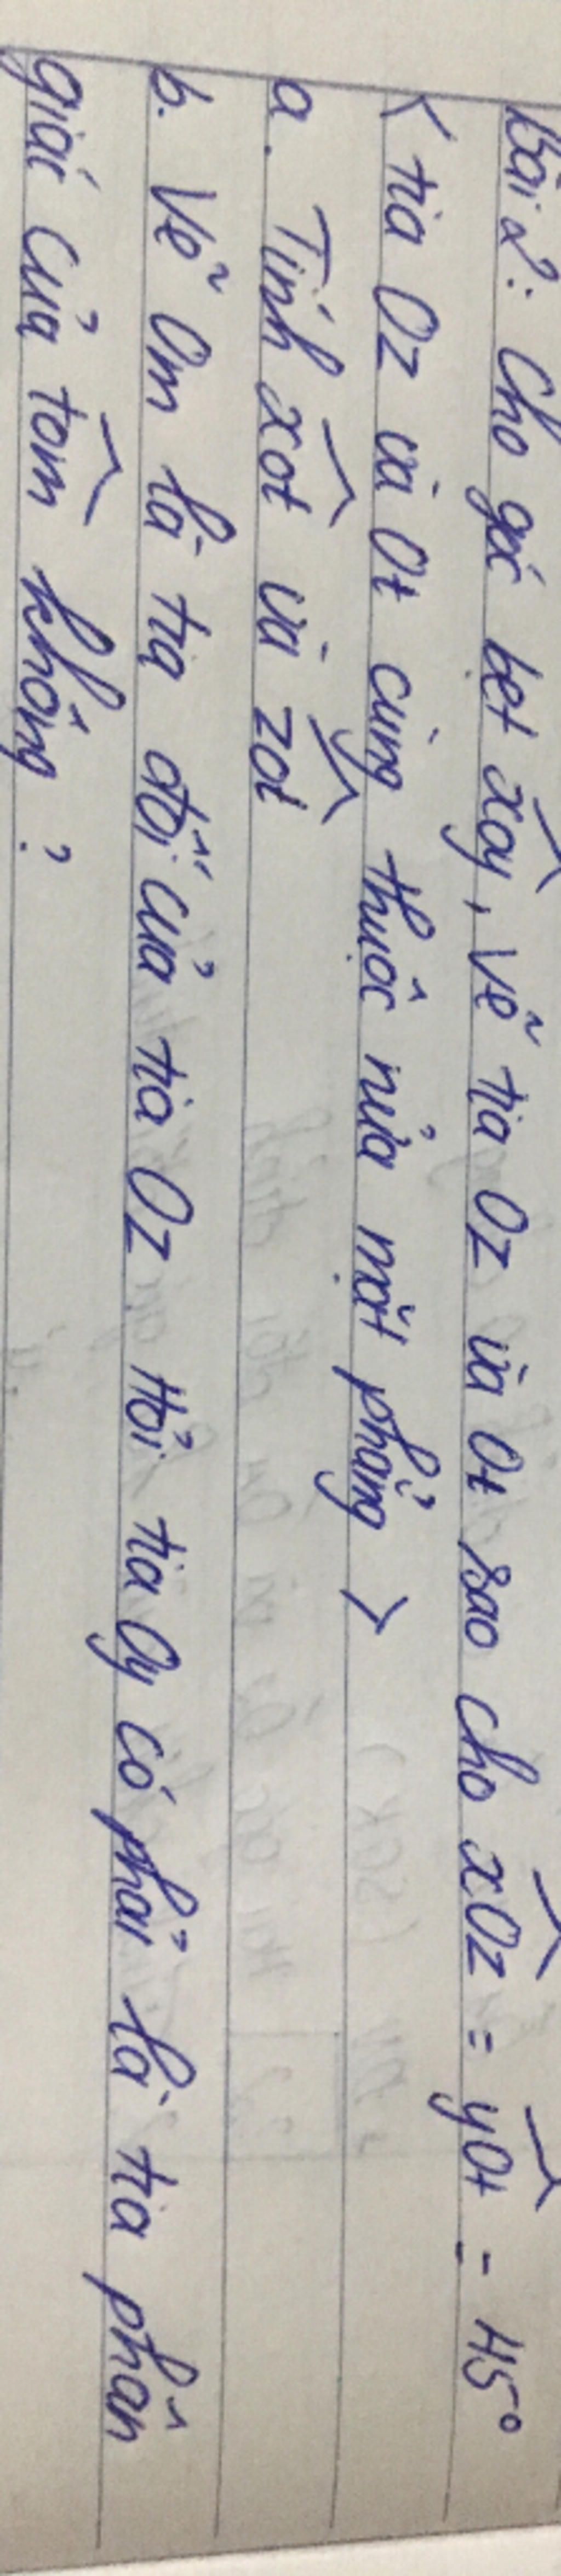 Bài 2: Cho góc bẹt xoy, Vẽ tia Oz và Ot sao cho xOz = yOt = 45°
< tia Oz và Ot cùng thuộc nửa mặt phẳng >
a. Tính xot và zot
b. Vẽ Om là tia đối của tia Oz Hỏi tia Oy có phải là tia phân
giác của tom không?